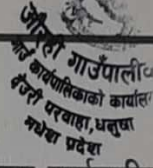 गाउँपालिका
गाउँ कार्यपालिकाको कार्यालय
परवाहा, धनुषा
मधेश प्रदेश